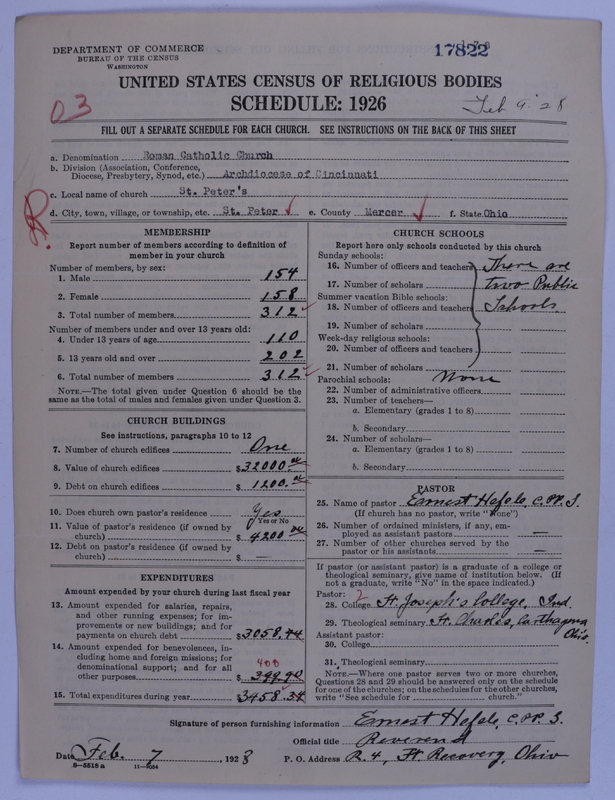 DEPARTMENT OF COMMERCE
BUREAU OF THE CENSUS
WASHINGTON
17822
UNITED STATES CENSUS OF RELIGIOUS BODIES
SCHEDULE: 1926
03
Feb 9 '28
FILL OUT A SEPARATE SCHEDULE FOR EACH CHURCH. SEE INSTRUCTIONS ON THE BACK OF THIS SHEET
a. Denomination Roman Catholic Church
b. Division (Association, Conference,
Diocese, Presbytery, Synod, etc.) Archdiocese of Cincinnati
c. Local name of church St. Peter's
d. City, town, village, or township, etc. St. Peter e. County Mercer f. State Ohio
R.
MEMBERSHIP
Report number of members according to definition of
member in your church
Number of members, by sex:
1. Male 154
2. Female 158
3. Total number of members 312
Number of members under and over 13 years old:
4. Under 13 years of age 110
5. 13 years old and over 202
6. Total number of members 312
NOTE.—The total given under Question 6 should be
same as the total of males and females given under Question 3.
CHURCH BUILDINGS
See instructions, paragraphs 10 to 12
7. Number of church edifices One
8. Value of church edifices $32000.00
9. Debt on church edifices $1200.00
10. Does church own pastor's residence? Yes
Yes or No
11. Value of pastor's residence (if owned by
church) $4200.00
12. Debt on pastor's residence (if owned by
church) $ —
EXPENDITURES
Amount expended by your church during last fiscal year
13. Amount expended for salaries, repairs,
and other running expenses; for im-
provements or new buildings; and for
payments on church debt $3058.44
14. Amount expended for benevolences, in-
cluding home and foreign missions; for
denominational support; and for all
other purposes $399.90
400
15. Total expenditures during year $3458.34
CHURCH SCHOOLS
Report here only schools conducted by this church
Sunday schools:
16. Number of officers and teachers There are
17. Number of scholars two Public
Summer vacation Bible schools:
18. Number of officers and teachers Schools.
19. Number of scholars
Week-day religious schools:
20. Number of officers and teachers
21. Number of scholars
Parochial schools: None
22. Number of administrative officers
23. Number of teachers—
a. Elementary (grades 1 to 8)
b. Secondary
24. Number of scholars—
a. Elementary (grades 1 to 8)
b. Secondary
PASTOR
25. Name of pastor Ernest Hefele, C.PP.S.
(If church has no pastor, write "None")
26. Number of ordained ministers, if any, em-
ployed as assistant pastors —
27. Number of other churches served by the
pastor or his assistants —
If pastor (or assistant pastor) is a graduate of a college or
theological seminary, give name of institution below. (If
not a graduate, write "No" in the space indicated.)
Pastor:
28. College St. Joseph's College, Ind.
29. Theological seminary St. Charles, Carthagena
Ohio.
Assistant pastor:
30. College
31. Theological seminary
NOTE.—Where one pastor serves two or more churches,
Questions 28 and 29 should be answered only on the schedule
for one of the churches; on the schedules for the other churches,
write "See schedule for church."
Signature of person furnishing information Ernest Hefele, C.PP.S.
Official title Reverend
Date Feb. 7, 1928 P. O. Address R. 4, Ft. Recovery, Ohio
8-5518a 11-9034